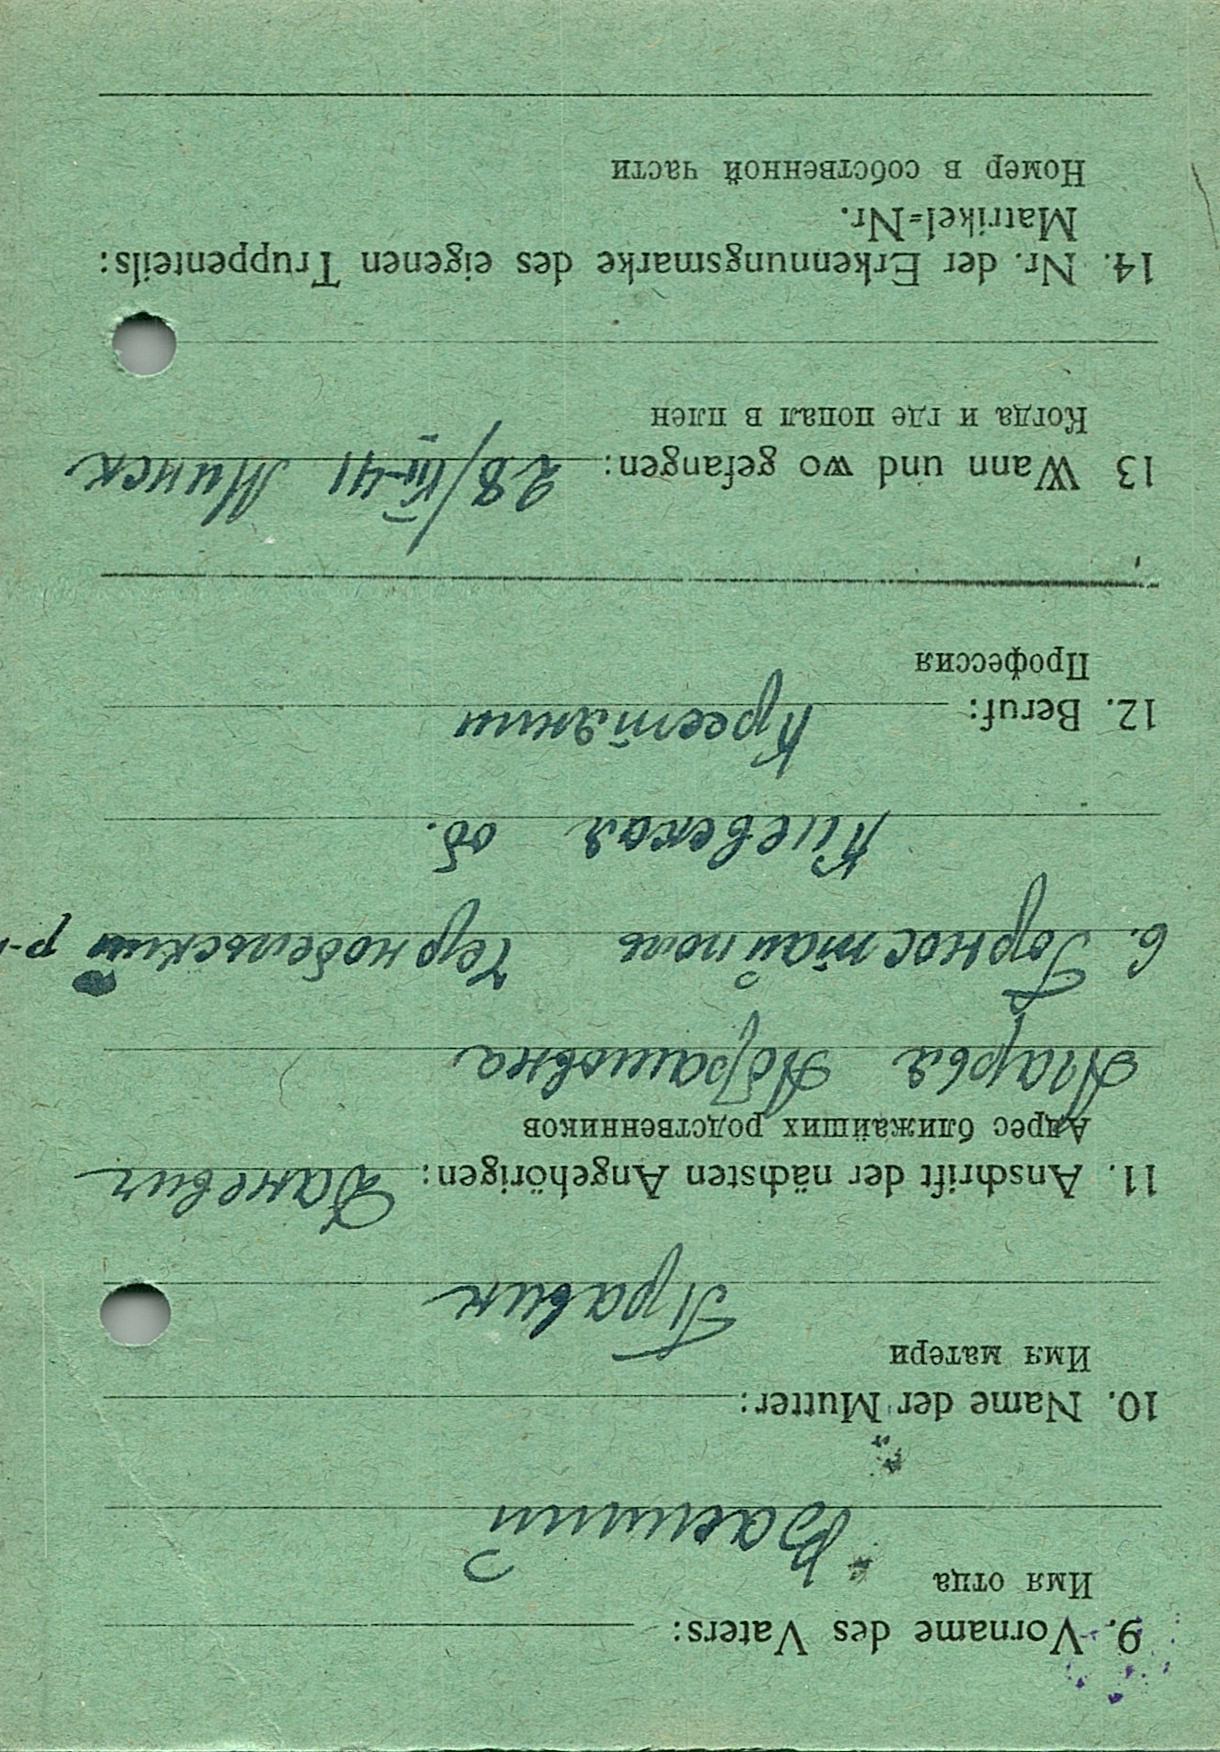 9. Vorname des Vaters:
Имя отца
Василий
10. Name der Mutter:
Имя матери
11. Anschrift der nächsten Angehörigen: Даневич
Адрес ближайших родственников
Марья Абрамовна
с. Горностайполь Чернобельский р-н
Киевская об.
12. Beruf: Крестянин
Профессия
13 Wann und wo gefangen: 28/VII-41 Минск
Когда и где попал в плен
14. Nr. der Erkennungsmarke des eigenen Truppenteils:
Matrikel-Nr.
Номер в собственной части